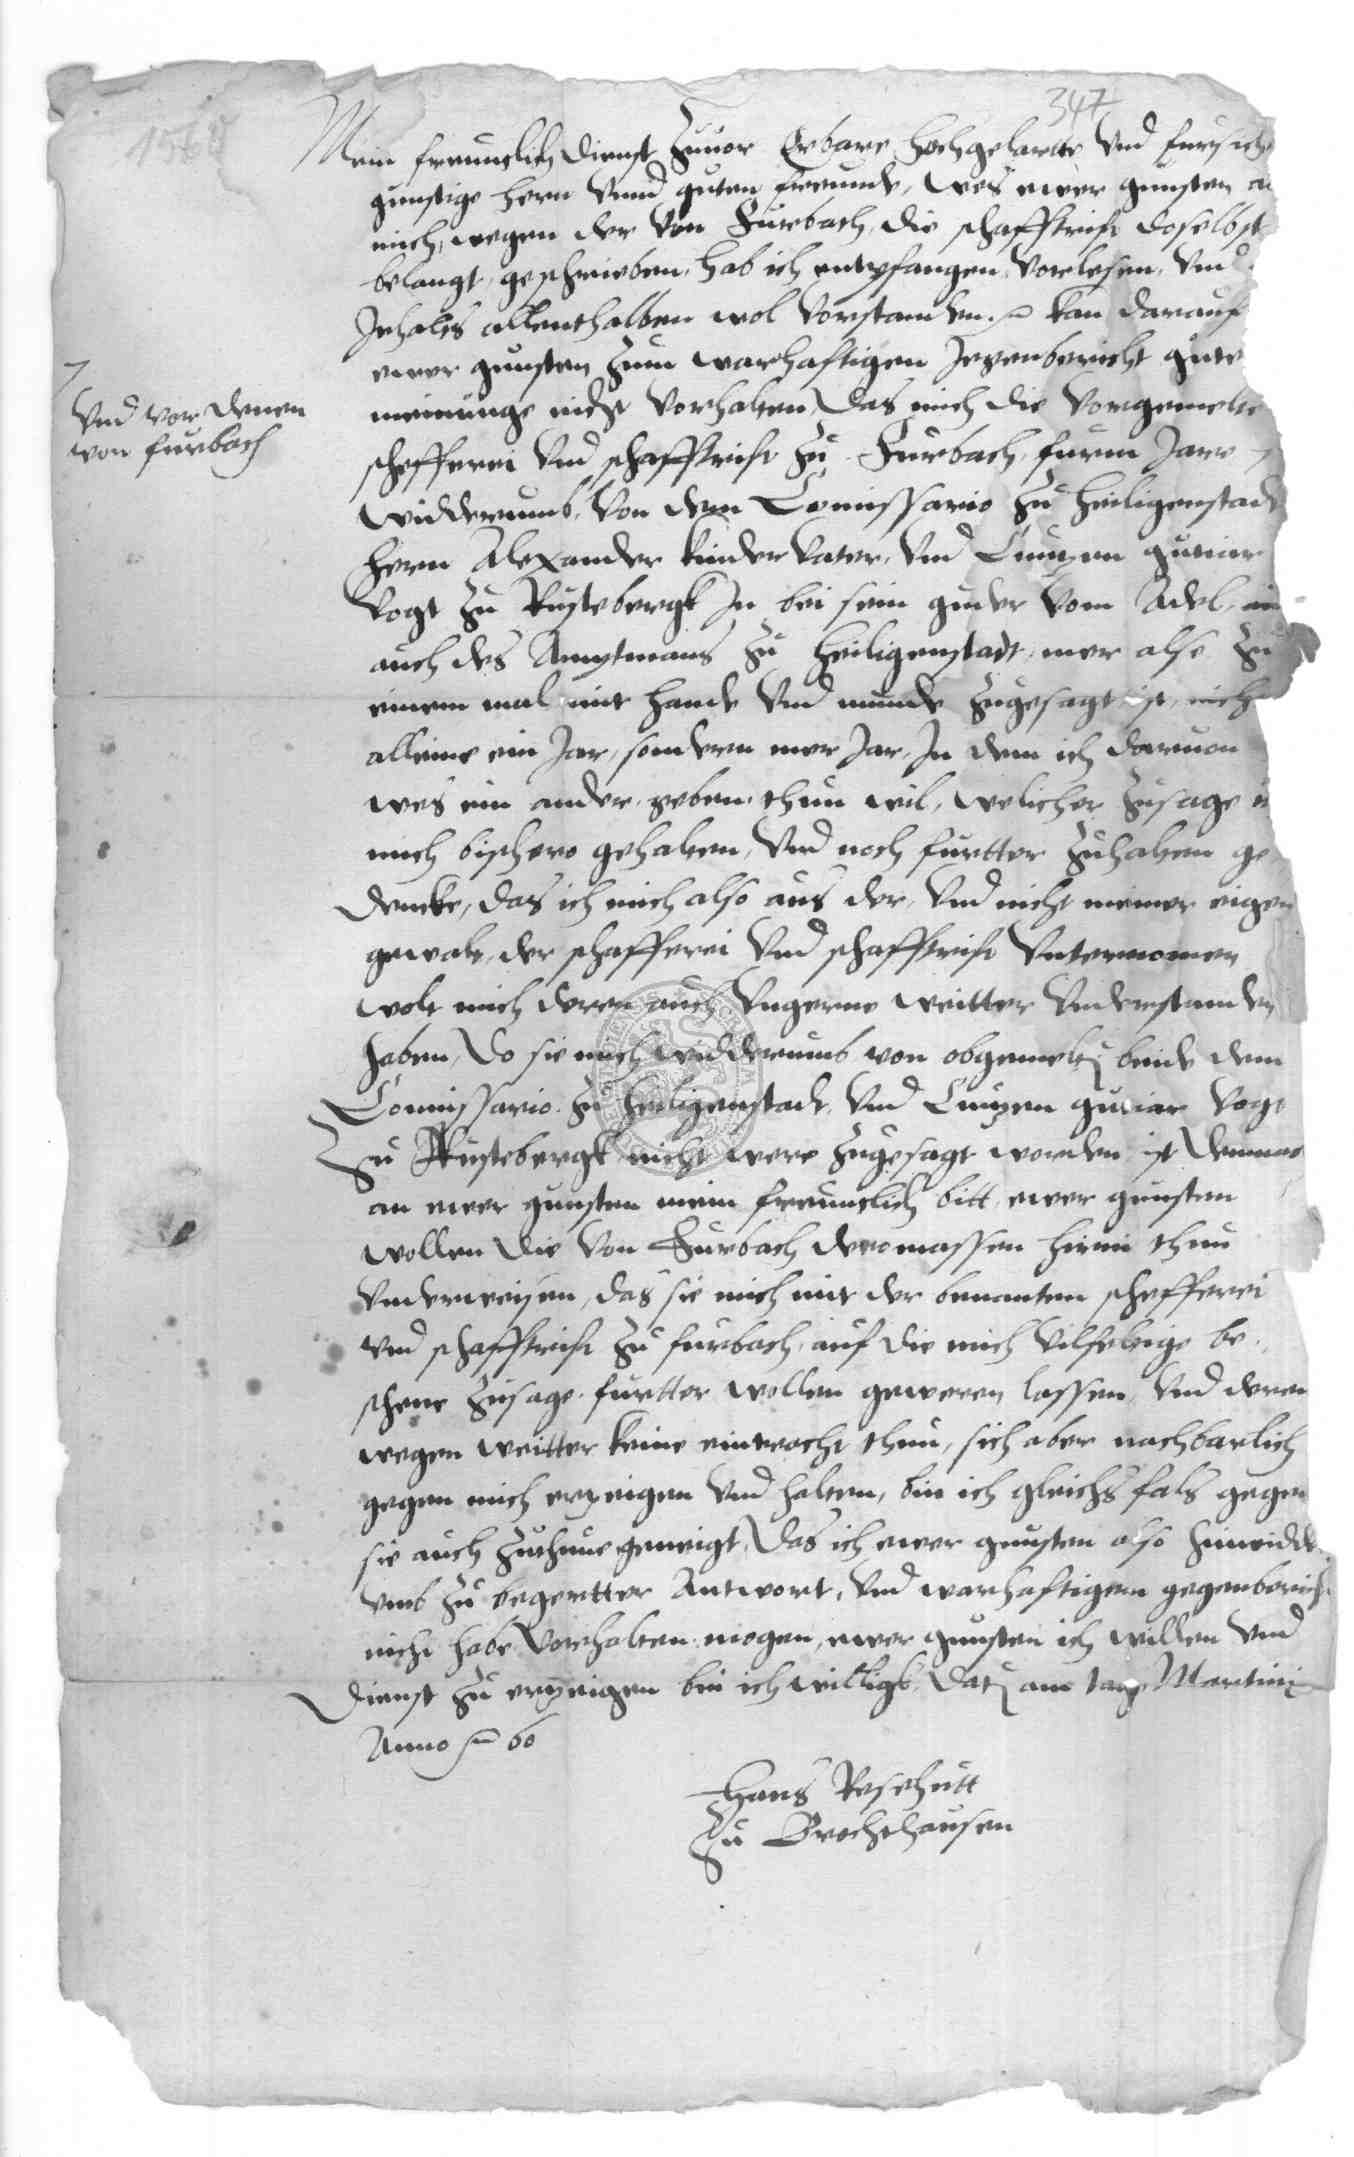 347
1560
Mein freuntlich Dienst zuuor Erbare hochgelarte vnd fursich
gunstige hern vnnd guten freunde, wes ewer gunsten
mich, wegen der von Furbach, die schafftrifft doselbst
belangt, geschrieben, hab ich entpfangen, vorlesen, vnd
Inhalts allenthalben wol vorstanden. kan darauf
ewer gunsten zum warhaftigen Jegenbericht guter
meinunge nicht vorhalten, das mich die vorgemelte
vnd vor denen
von furbach
schefferei vnd schafftrifft zu Furbach, furm Jare
widderumb, von dem Comissario zu Heiligenstadt
hern Alexander kindervater, vnd
Vogt zu Rustebergk In bei sein guder vom Adel,
auch des Amptmans zu Heiligenstadt, mer also zu
einem mal mit hande vnd munde zugesagt ist, nich
alleine ein Jar, sondern mer Jar, In dem ich daruon
wes ein ander geben, thun wil, welicher zusage
mich bishero gehalten, vnd noch furtter zuhalten ge
dencke, das ich mich also aus der, vnd nicht meiner eigen
gewalt, der schefferei vnd schafftrifft vnternomen
wolt mich deren auch vngerne weitter vnderstanden
haben, do sie mich widderumb von obgemelt beide dem
Comissario zu Heiligenstadt, vnd
Vogt
zu Rustebergk nicht were zugesagt worden, ist
an ewer gunsten mein freuntlich bitt, ewer gunsten
wollen die von Furbach deromassen hirin thun
vnderweisen, das sie mich mit der benanten schefferei
vnd schafftrifft zu furbach, auf die mich vilfeltige be
schene zusage furtter wollen geweren lassen, vnd deren
wegen weitter keine eintracht thun, sich aber nachbarlich
gegen mich erzeigen vnd halten, bin ich gleichs fals gegen
sie auch zuthune geneigt, Das ich ewer gunsten also hinwidde
vmb zu begertter Antwort, vnd warhaftigem gegenbericht
nicht habe vorhalten mogen, ewer gunsten ich willen vnd
Dienst zu erzeigen bin ich willigk, Dat am tage Martini
Anno 60
Hans Resehutt
zu Brochthausen